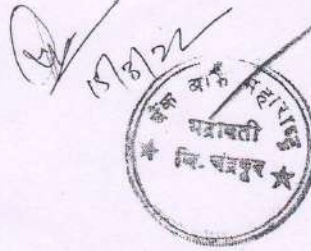 15/3/22
बँक ऑफ महाराष्ट्र
भद्रावती
जि. चंद्रपूर